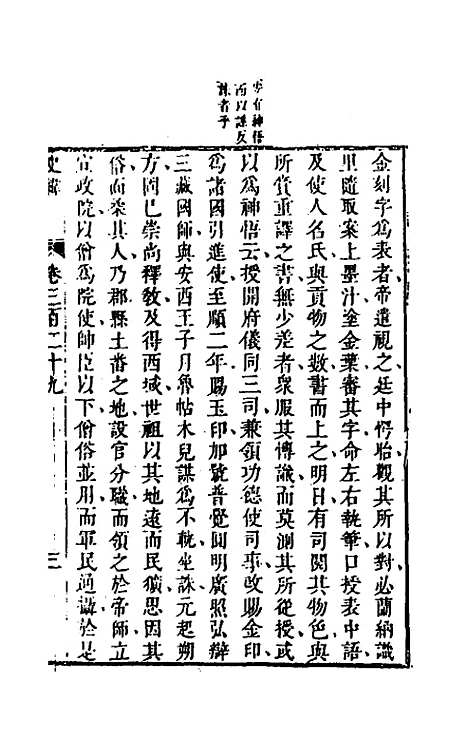 安有神悟
而以謀反
誅者乎
金刻字爲表者帝遣視之廷中愕眙觀其所以對必蘭納識
里隨取案上墨汁塗金葉審其字命左右執筆口授表中語
及使人名氏與貢物之數書而上之明日有司閱其物色與
所賫重譯之書無少差者衆服其博識而莫測其所從授或
以爲神悟云授開府儀同三司兼領功德使司事改賜金印
爲諸國引進使至順二年賜玉印加號普覺圓明廣照弘辯
三藏國師與安西王子月魯帖木兒謀爲不軌坐誅元起朔
方固已崇尚釋教及得西域世祖以其地遠而民獷思因其
俗而柔其人乃郡縣土番之地設官分職而領之於帝師立
宣政院以僧爲院使帥臣以下僧俗並用而軍民通攝於是
史緯
卷三百二十九
三